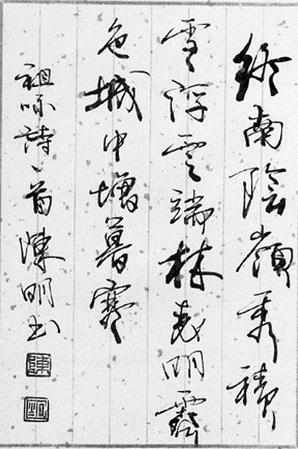 終南陰嶺秀積
雪浮雲端林表明霽
色城中增暮寒
祖咏詩一首陳明书
陳
明